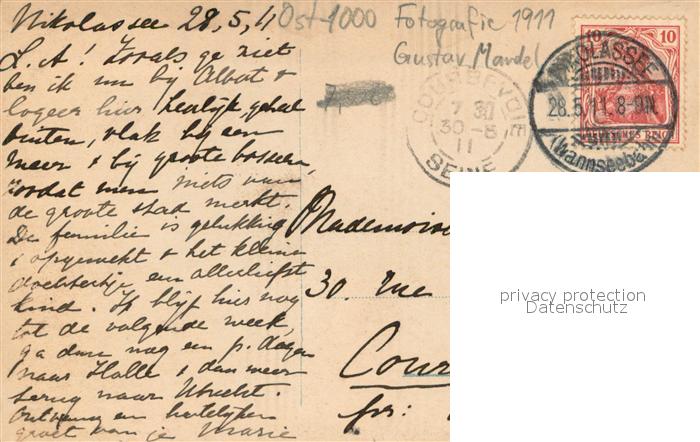 Nikolassee 28,5,11
L. A! Zooals ge ziet
ben ik nu bij Albat &
logeer hier heerlijk, geheel
buiten, vlak bij een
meer & bij groote bossen,
zoodat men niets van
de groote stad merkt.
De familie is gelukkig
& opgewekt & het kleine
dochtertje een allerliefst
kind. Ik blijf hier nog
tot de volgende week,
ga dan nog een p. dagen
naar Halle & dan weer
terug naar Utrecht.
Ontvang een hartelijken
groet van je Marie
Ost-1000 Fotografie 1911
Gustav Mandel
COURBEVOIE
7 30
30-5
11
SEINE
10 10
NIKOLASSEE
28.5.11. 8-9N.
(Wannseebahn)
DEUTSCHES REICH
Mademoise
30. Rue
Cour
privacy protection
Datenschutz